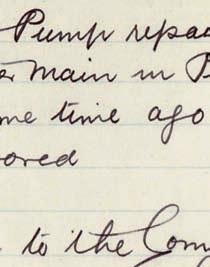 Pump repa
main in P
me time ago
ored
to the Com